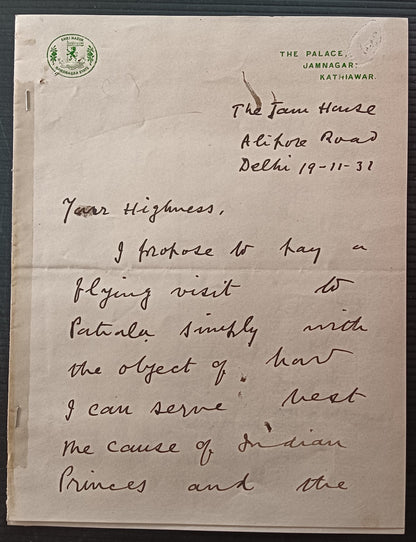 SHRI NAGAR
NAWANAGAR STATE
THE PALACE,
JAMNAGAR.
KATHIAWAR.
The Jam House
Alipore Road
Delhi 19-11-31
Your Highness,
I propose to pay a
flying visit to
Patiala simply with
the object of how
I can serve best
the cause of Indian
Princes and the